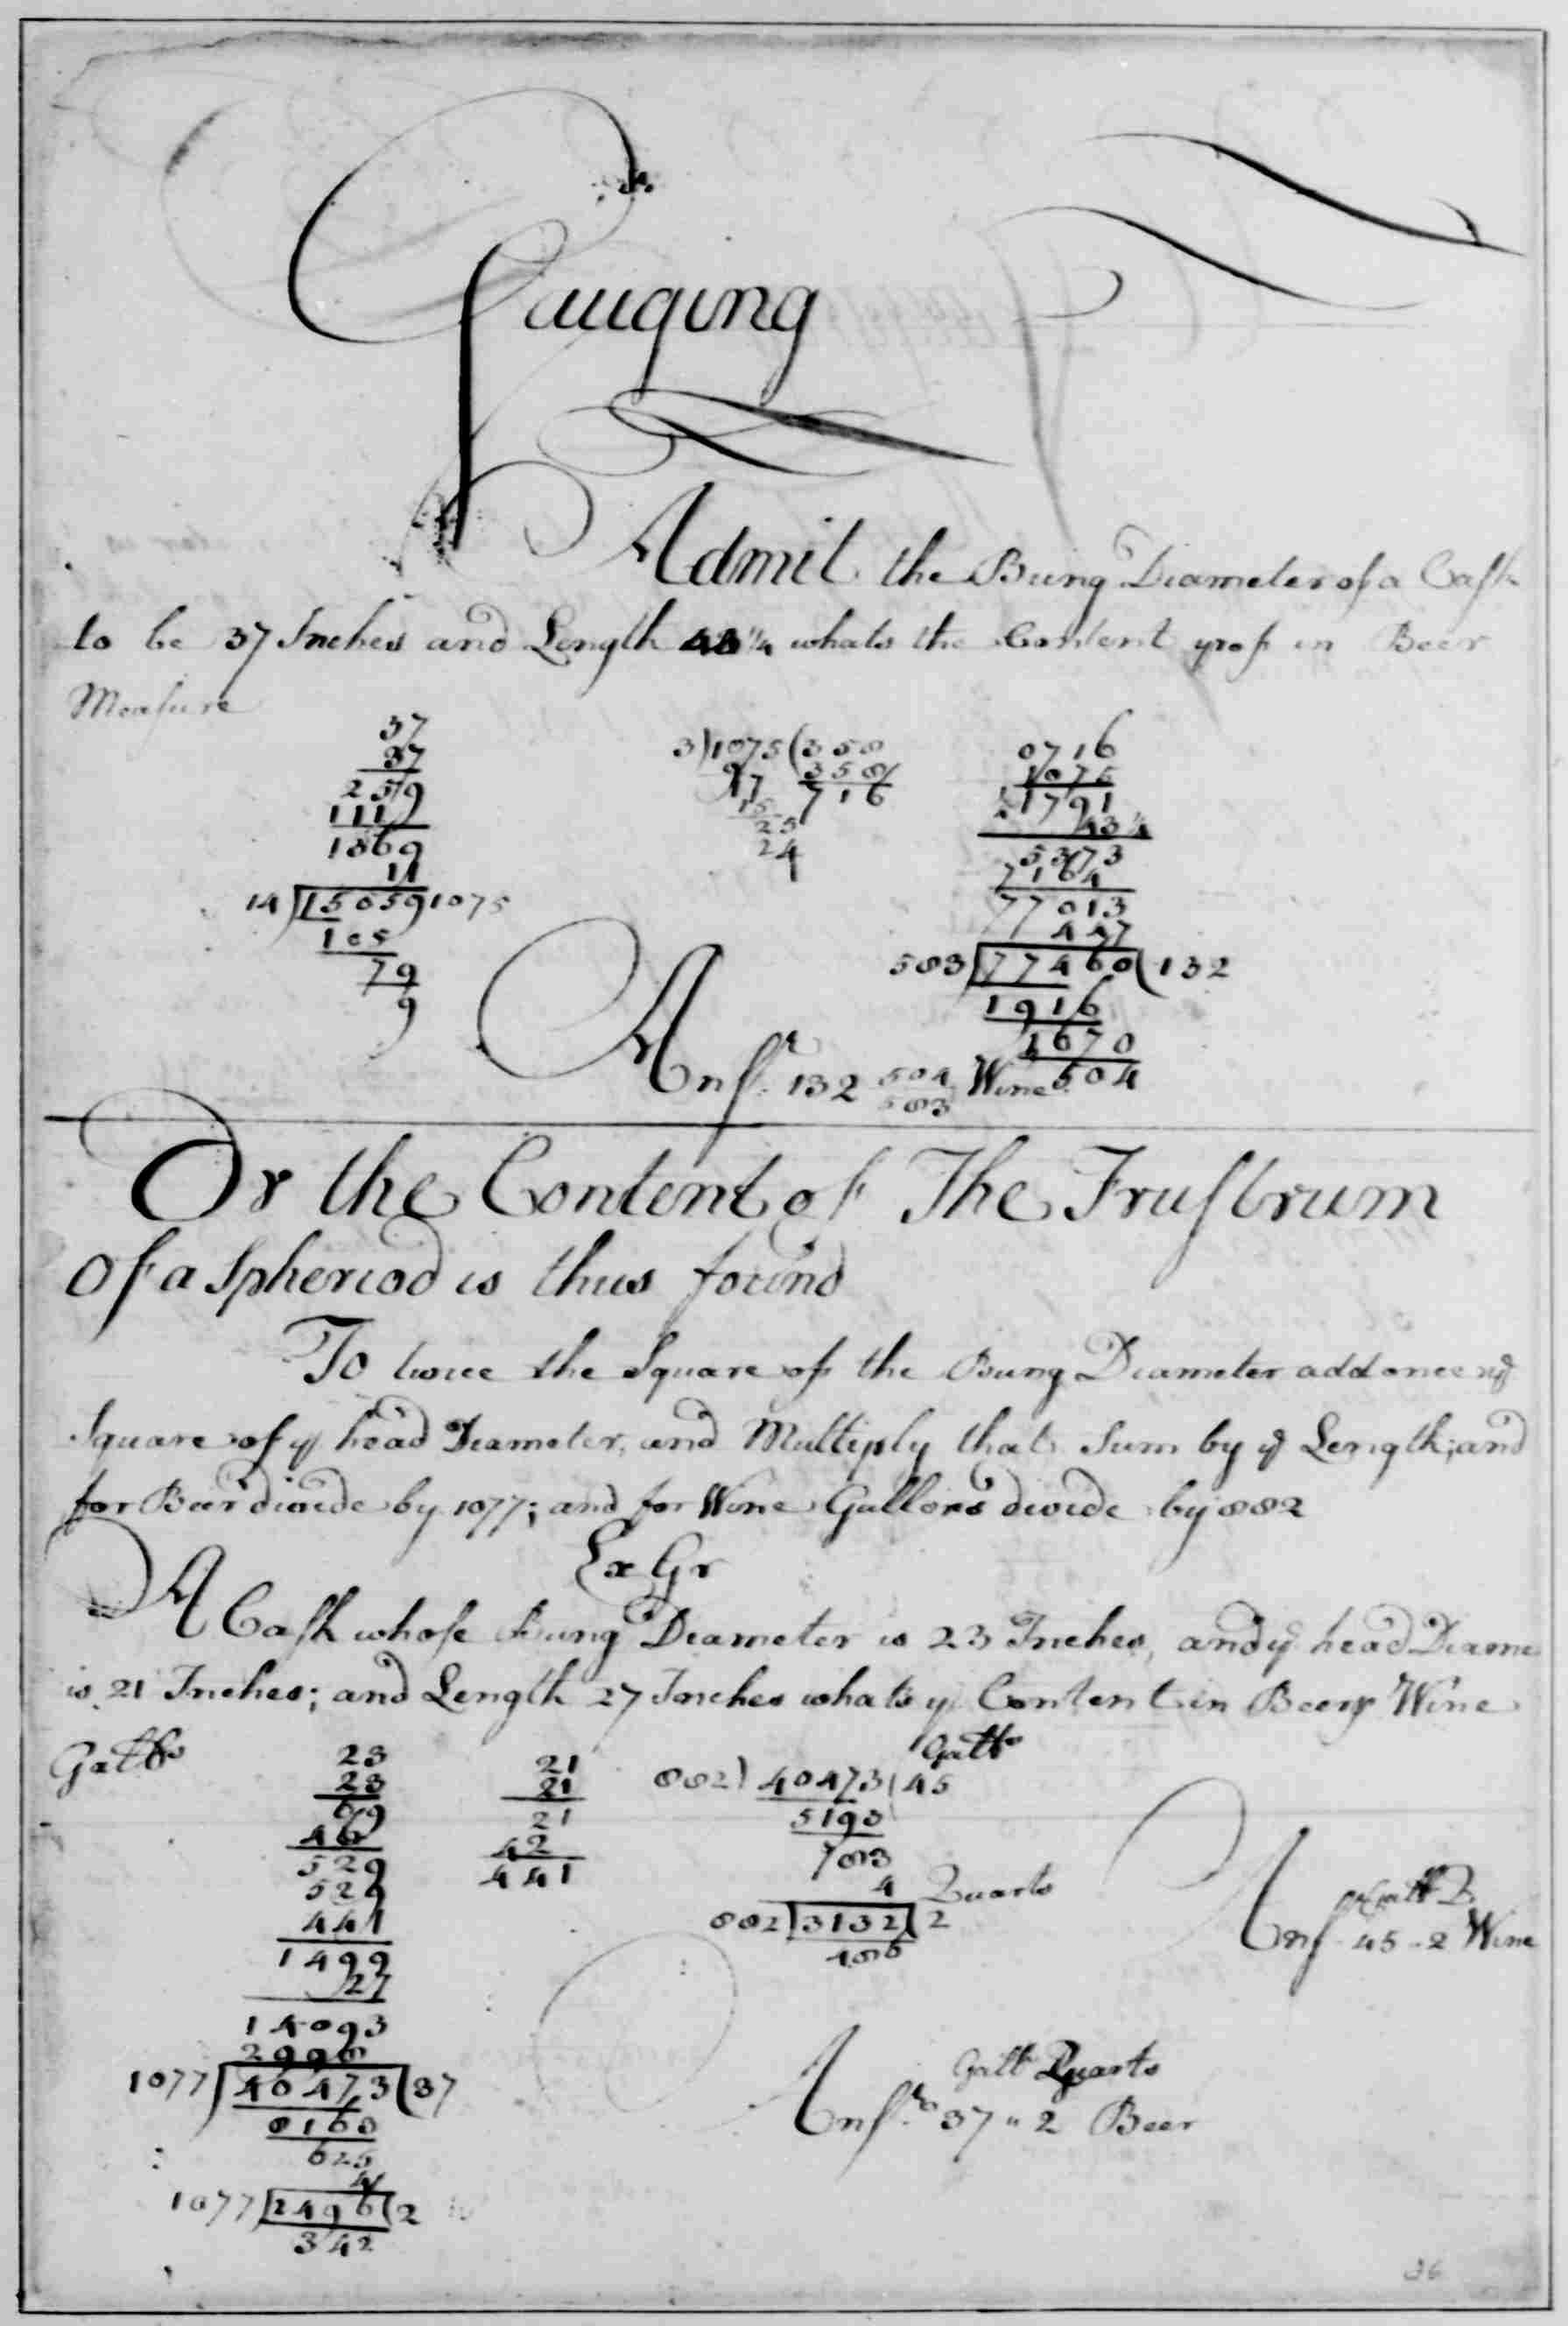 Gauging
Admit the Bung Diameter of a Cask
to be 37 Inches and Length 43 1/4 whats the Content yrof in Beer
Measure
37
37
259
111
1369
11
14 15059 1075
105
79
9
3)1075(358
9 358
17 716
15
25
24
0716
1075
1791
43 1/4
5373
7164
77013
447
583 77460 (132
1916
1670
504
Ansr. 132 504/583 Wine
Or the Content of The Frustrum
Of a Spheriod is thus found
To twice the Square of the Bung Diameter add once ye
Square of ye head Diameter, and Multiply that Sum by ye Length; and
for Beer divide by 1077; and for Wine Gallons divide by 882
Ex Gr
A Cask whose Bung Diameter is 23 Inches, and ye head Diame
is 21 Inches; and Length 27 Inches whats ye Content in Beer Wine
Galls
23
23
69
46
529
529
441
1499
27
10493
2998
1077 40473 (37
8163
625
4
1077 2496 (2
342
21
21
21
42
441
Galls
882) 40473 (45
5193
783
4 Quarts
882 3132 2
486
Gall Q
Ans 45 - 2 Wine
Gall Quarts
Ansr 37 " 2 Beer
26